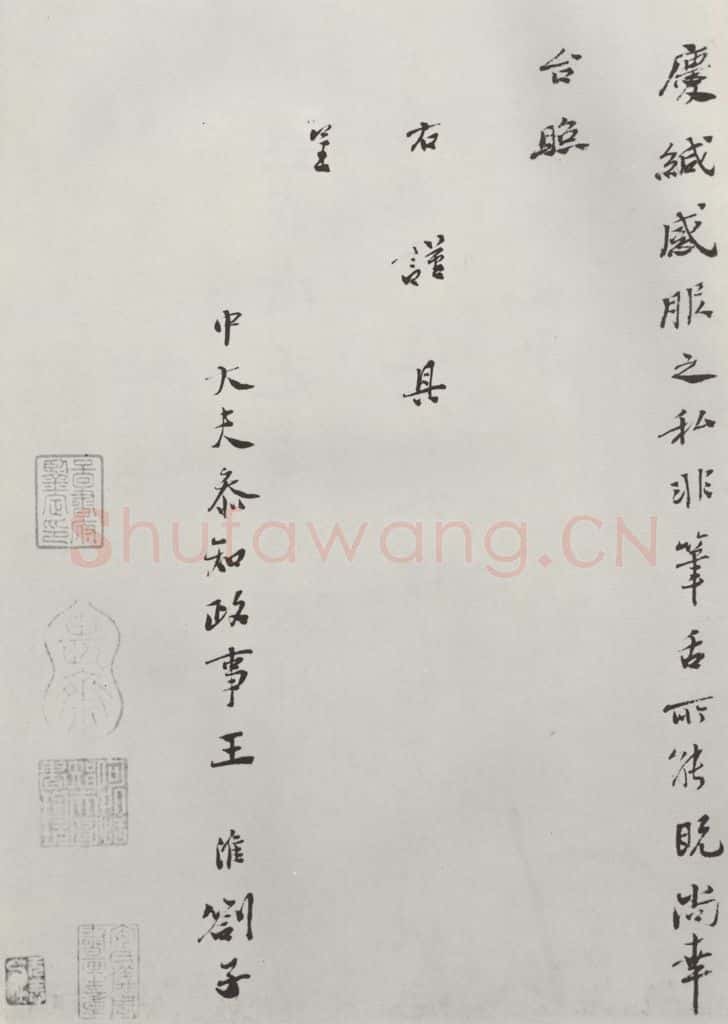 慶緘感服之私非筆舌所能既尚幸
台照
右謹具
呈
中大夫参知政事王 淮劄子
Shufawang.CN